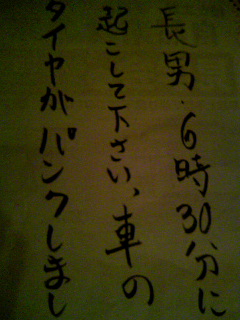 長男・6時30分に
起こして下さい、車の
タイヤがパンクしまし